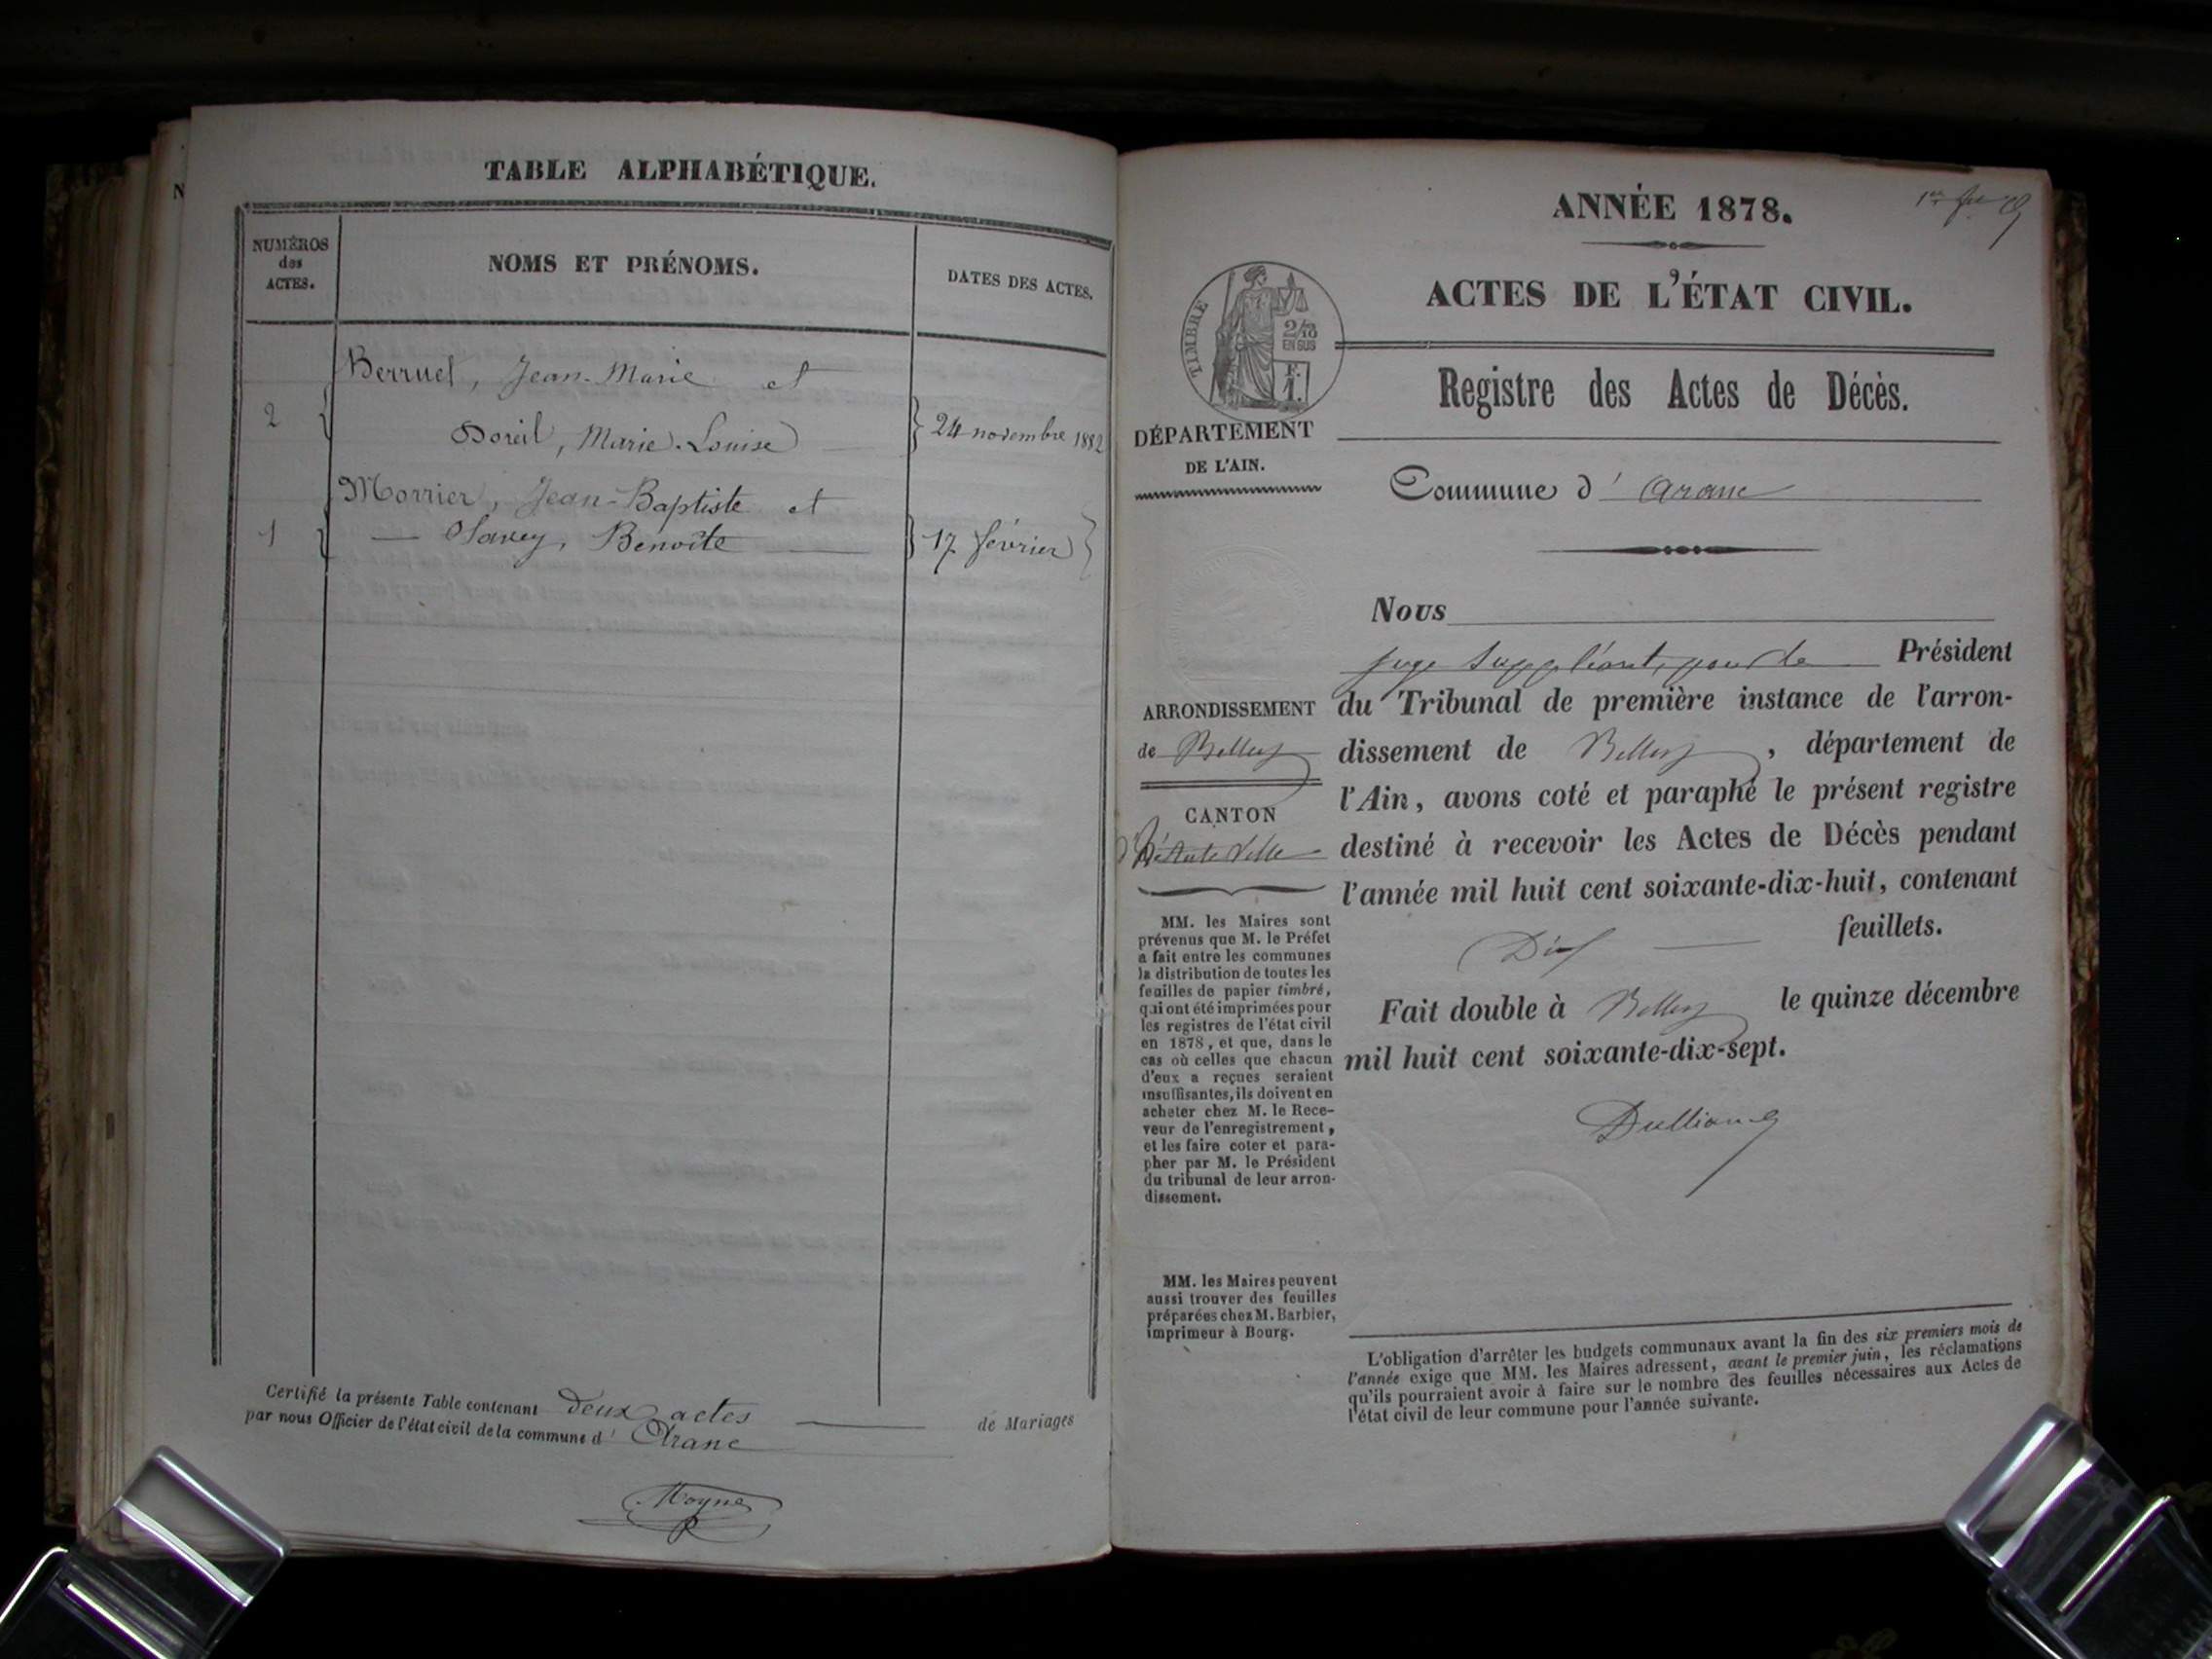 N
TABLE ALPHABÉTIQUE.
NUMÉROS
des
ACTES.
NOMS ET PRÉNOMS.
DATES DES ACTES.
Berruet, Jean-Marie et
2
Doreil, Marie-Louise
24 novembre 1882
Morrier, Jean-Baptiste et
1
Savey, Benoîte
17 février
Certifié la présente Table contenant deux actes de Mariages
par nous Officier de l'état civil de la commune d' Aranc
Moyne
ANNÉE 1878.
1er
TIMBRE
2/10
EN SUS
F.
1.
ACTES DE L'ÉTAT CIVIL.
Registre des Actes de Décès.
DÉPARTEMENT
DE L'AIN.
Commune d' Aranc
Nous
juge suppléant, pour le Président
du Tribunal de première instance de l'arron-
dissement de Belley, département de
l'Ain, avons coté et paraphé le présent registre
destiné à recevoir les Actes de Décès pendant
l'année mil huit cent soixante-dix-huit, contenant
Dix feuillets.
Fait double à Belley le quinze décembre
mil huit cent soixante-dix-sept.
ARRONDISSEMENT
de Belley
CANTON
d'hauteville
MM. les Maires sont
prévenus que M. le Préfet
a fait entre les communes
la distribution de toutes les
feuilles de papier timbré,
qui ont été imprimées pour
les registres de l'état civil
en 1878, et que, dans le
cas où celles que chacun
d'eux a reçues seraient
insuffisantes, ils doivent en
acheter chez M. le Rece-
veur de l'enregistrement,
et les faire coter et para-
pher par M. le Président
du tribunal de leur arron-
dissement.
MM. les Maires peuvent
aussi trouver des feuilles
préparées chez M. Barbier,
imprimeur à Bourg.
L'obligation d'arrêter les budgets communaux avant la fin des six premiers mois de
l'année exige que MM. les Maires adressent, avant le premier juin, les réclamations
qu'ils pourraient avoir à faire sur le nombre des feuilles nécessaires aux Actes de
l'état civil de leur commune pour l'année suivante.